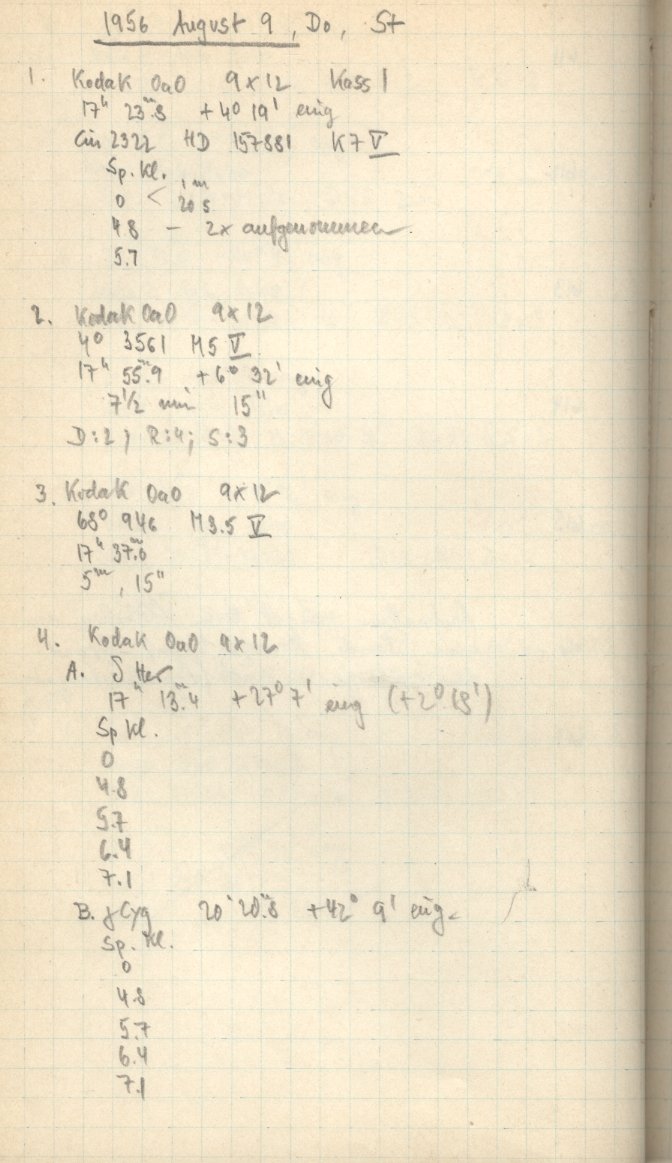 1956 August 9, Do, St
1. Kodak OaO 9x12 Kass 1
17h 23m.8 +4° 19' eing
Cin 2322 HD 157881 K7 V
Sp. Kl.
0 <
4.8 - 2x aufgenommen
5.7
2. Kodak OaO 9x12
4° 3561 M5 V
17h 55m.9 +6° 32' eing
7 1/2 min 15"
D:2, R:4; S:3
3. Kodak OaO 9x12
68° 946 M3.5 V
17h 37m.0
5m, 15"
4. Kodak OaO 9x12
A. δ Her
17h 13m.4 +27° 7' eing (+2° 18')
Sp Kl.
0
4.8
5.7
6.4
7.1
B. γ Cyg 20h 20m.8 +42° 9' eing.
Sp. Kl.
0
4.8
5.7
6.4
7.1